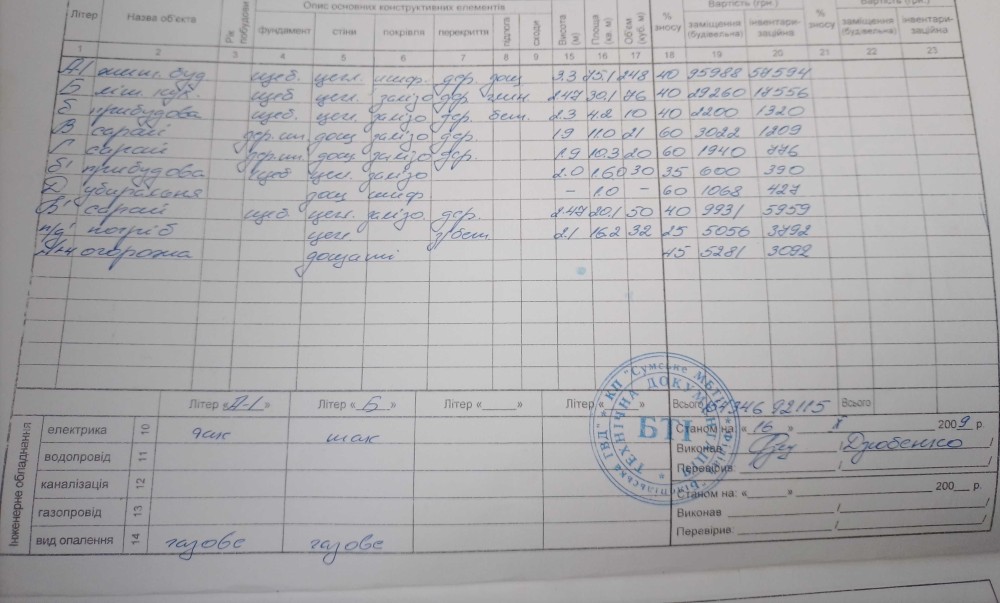 Опис основних конструктивних елементів Вартість (грн.) Вартість (грн.)
Літер Назва об'єкта Рік побудови фундамент стіни покрівля перекриття підлога сходи Висота (м) Площа (кв. м) Об'єм (куб. м) % зносу заміщення (будівельна) інвентари-заційна % зносу заміщення (будівельна) інвентари-заційна
1 2 3 4 5 6 7 8 9 15 16 17 18 19 20 21 22 23
А-1 жит. буд щеб. цегл. шиф. дер. дощ 3.3 75,1 248 40 95988 57594
Б літ. кух. щеб цегл. залізо дер 2.47 30,1 76 40 29260 17556
б прибудова щеб. цегл. залізо дер. бет. 2.3 4.2 10 40 2200 1320
В сарай дер.ст. дощ залізо дер. 1.9 11.0 21 60 3022 1209
Г сарай дер.ст. дощ залізо дер. 1.9 10,3 20 60 1940 776
б' прибудова щеб цегл. залізо 2.0 30 35 600 390
Д убиральня дощ шиф. – 1.0 – 60 1068 427
В' сарай щеб. цегл. залізо. дер. 2.47 20,1 50 40 9931 5959
п/д' погріб цегл з/бет. 2.1 16.2 32 25 5056 3792
огорожа дощаті 45 5281 3092
Літер «А-1» Літер «Б» Літер «______» Літер «______» Всього 154346 92115 Всього
Інженерне обладнання
електрика 10 так так
водопровід 11
каналізація 12
газопровід 13
вид опалення 14 газове газове
Станом на: «16» X 2009 р.
Виконав
Перевірив:
Станом на: «______» 200__ р.
Виконав
Перевірив:
КП "Сумське МБТІ"
ТЕХНІЧНА ДОКУМЕНТАЦІЯ
БТІ